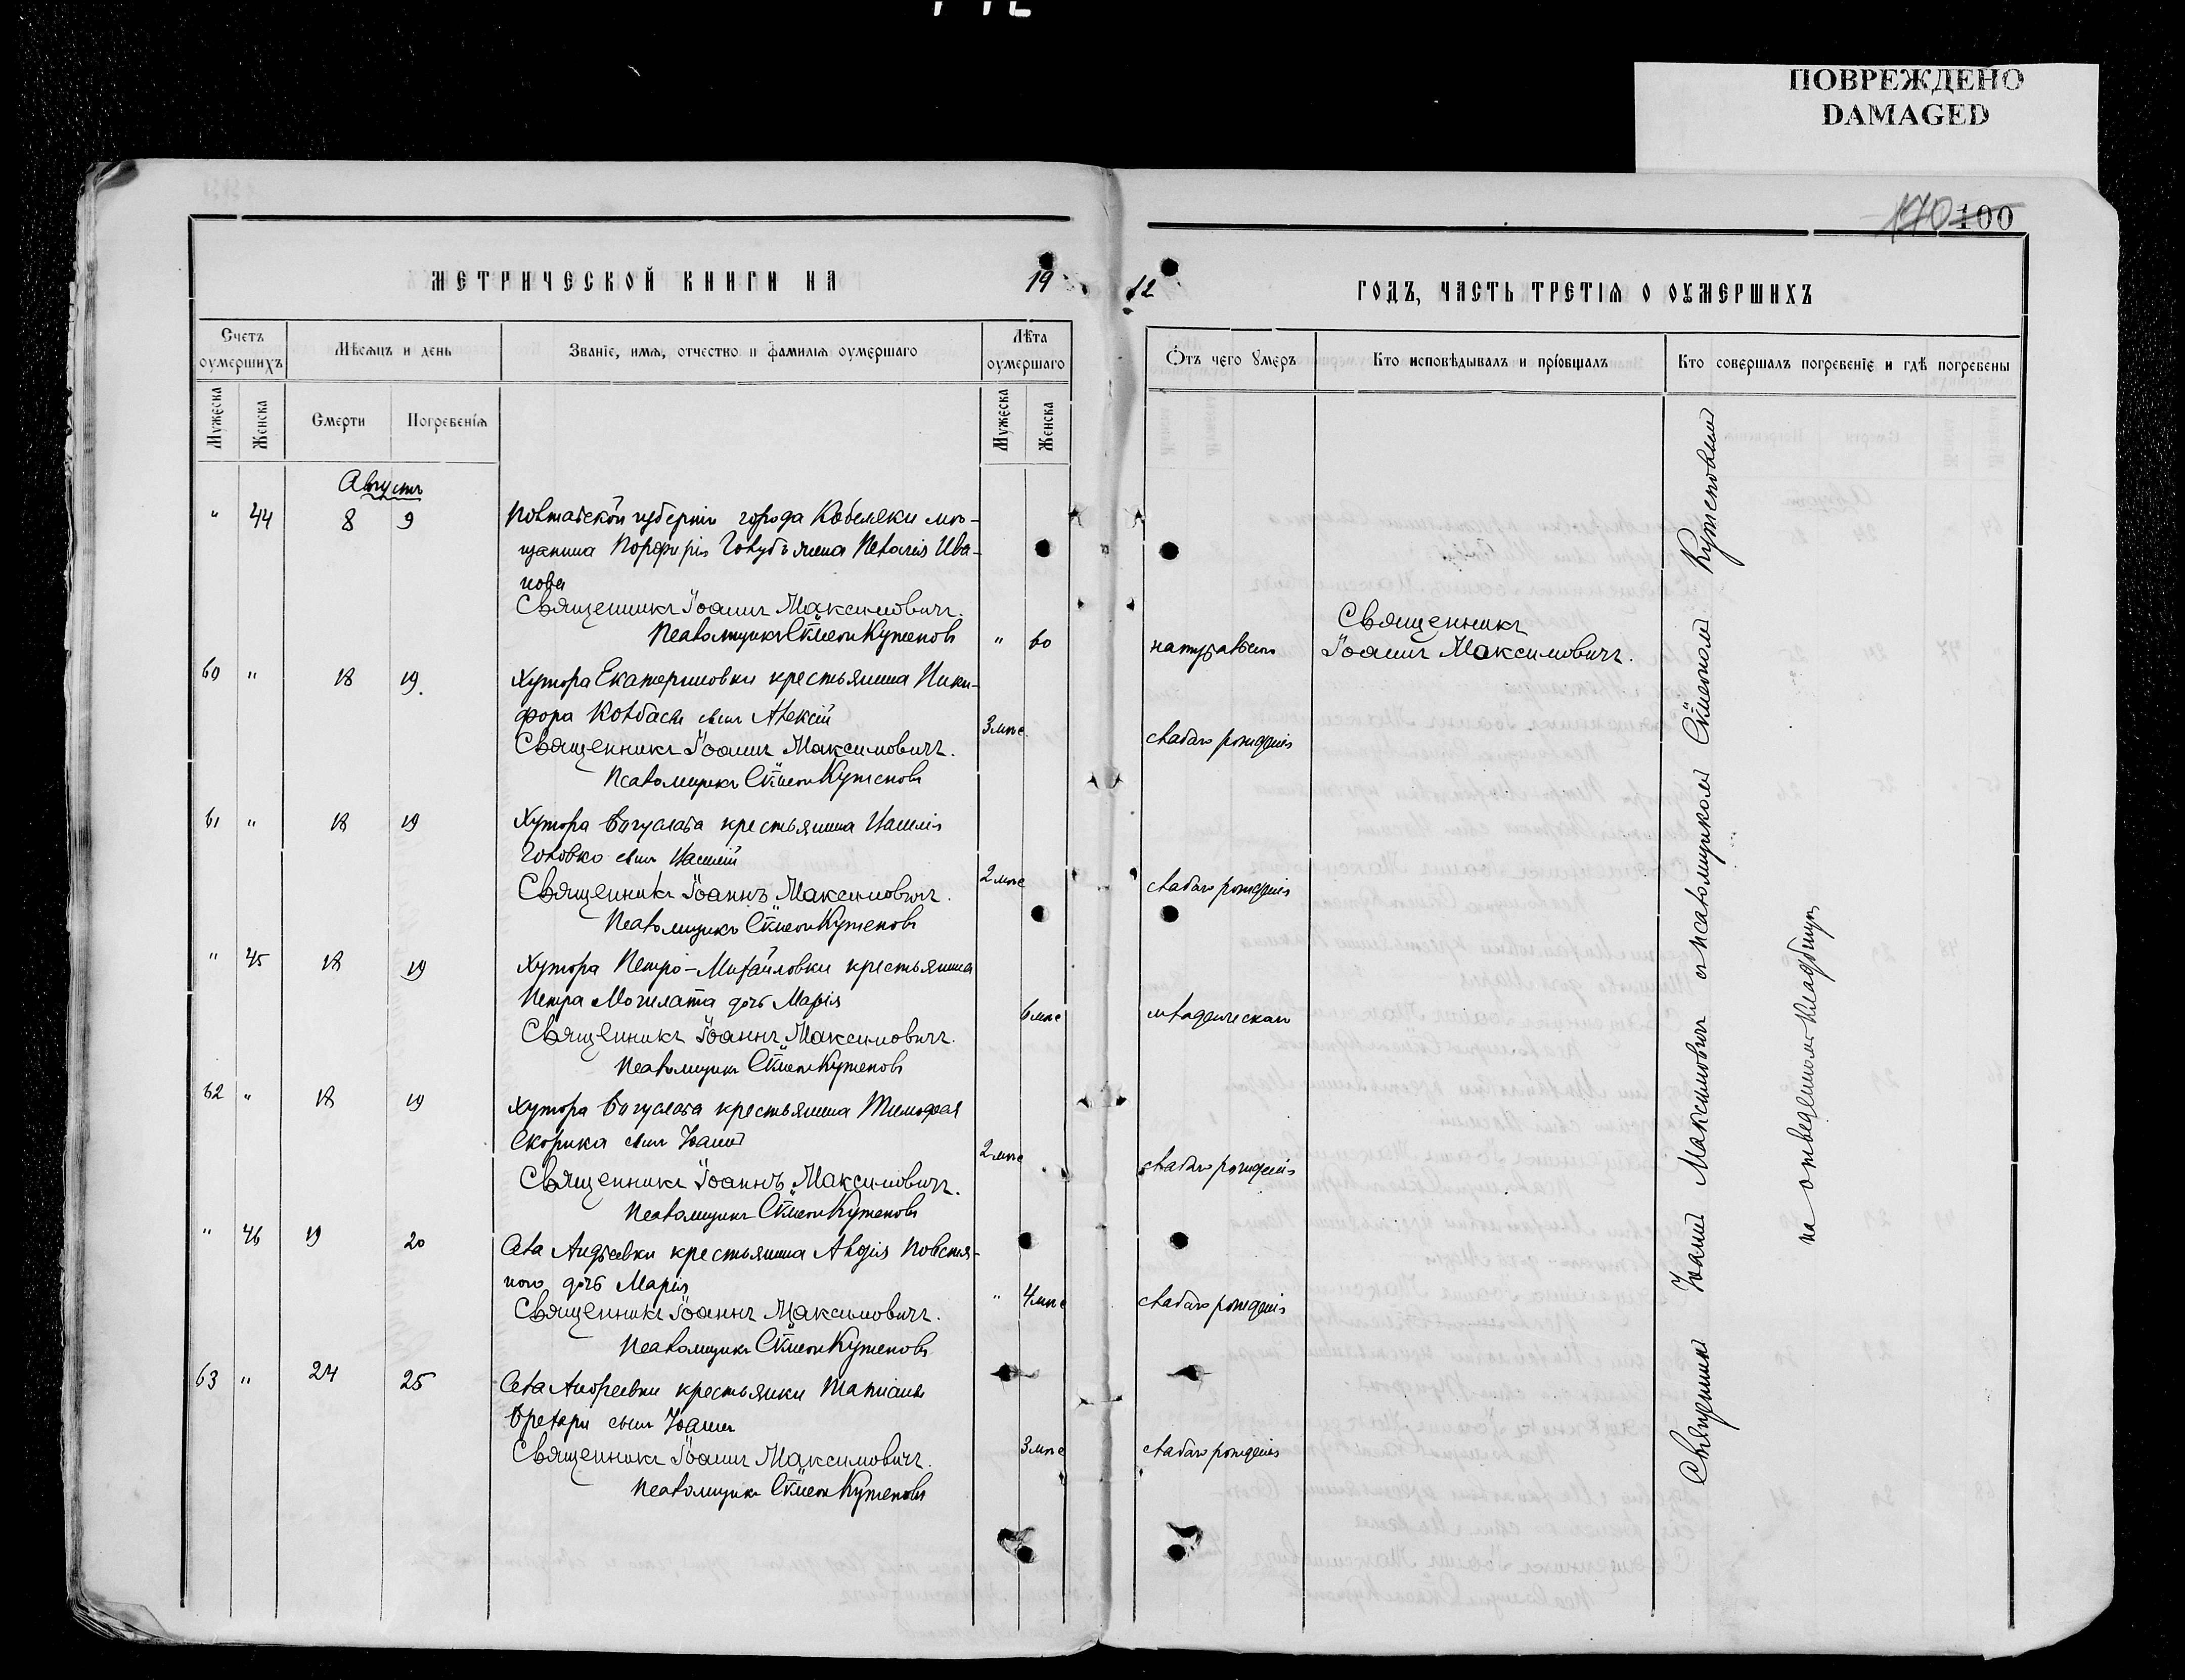 ПОВРЕЖДЕНО
DAMAGED
170 100
МЕТРИЧЕСКОЙ КНИГИ НА 19
12 ГОДЪ, ЧАСТЬ ТРЕТІЯ О ОУМЕРШИХЪ
Счетъ оумершихъ
Мѣсяцъ и день
Званіе, имя, отчество и фамилія оумершаго
Лѣта оумершаго
Отъ чего умеръ
Кто исповѣдывалъ и пріобщалъ
Кто совершалъ погребеніе и гдѣ погребены
Мужеска
Женска
Смерти
Погребенія
Мужеска
Женска
Августъ
" 44 8 9 Полтавской губерніи города Кобеляки мѣ-
щанина Порфирія Голубъ жена Пелагія Ива-
нова
Священникъ Іоаннъ Максимовичъ.
Псаломщикъ Сѵмеонъ Кутеповъ " 60 натурально
Священникъ
Іоаннъ Максимовичъ.
60 " 18 19. Хутора Екатериновки крестьянина Ники-
фора Колбасы сынъ Алексій
Священникъ Іоаннъ Максимовичъ. 3 мѣс слабаго рожденія
Псаломщикъ Сѵмеонъ Кутеповъ
61 " 18 19 Хутора Богуслава крестьянина
Головко сынъ
Священникъ Іоаннъ Максимовичъ. 2 мѣс слабаго рожденія
Псаломщикъ Сѵмеонъ Кутеповъ
" 45 18 19 Хутора Петро-Михайловки крестьянина
Петра Могилата дочь Марія
Священникъ Іоаннъ Максимовичъ. 6 мѣс младенческая
Псаломщикъ Сѵмеонъ Кутеповъ
62 " 18 19 Хутора Богуслава крестьянина Тимофея
Скорика сынъ Іоаннъ
Священникъ Іоаннъ Максимовичъ. 2 мѣс слабаго рожденія
Псаломщикъ Сѵмеонъ Кутеповъ
" 46 19 20 Села Андреевки крестьянина Авдія
дочь Марія
Священникъ Іоаннъ Максимовичъ. " 4 мѣс слабаго рожденія
Псаломщикъ Сѵмеонъ Кутеповъ
63 " 24 25 Села Андреевки крестьянки Татіаны
сынъ Іоаннъ
Священникъ Іоаннъ Максимовичъ. 3 мѣс слабаго рожденія
Псаломщикъ Сѵмеонъ Кутеповъ
Священникъ Іоаннъ Максимовичъ съ псаломщикомъ Сѵмеономъ Кутеповымъ
на отведенномъ кладбищѣ